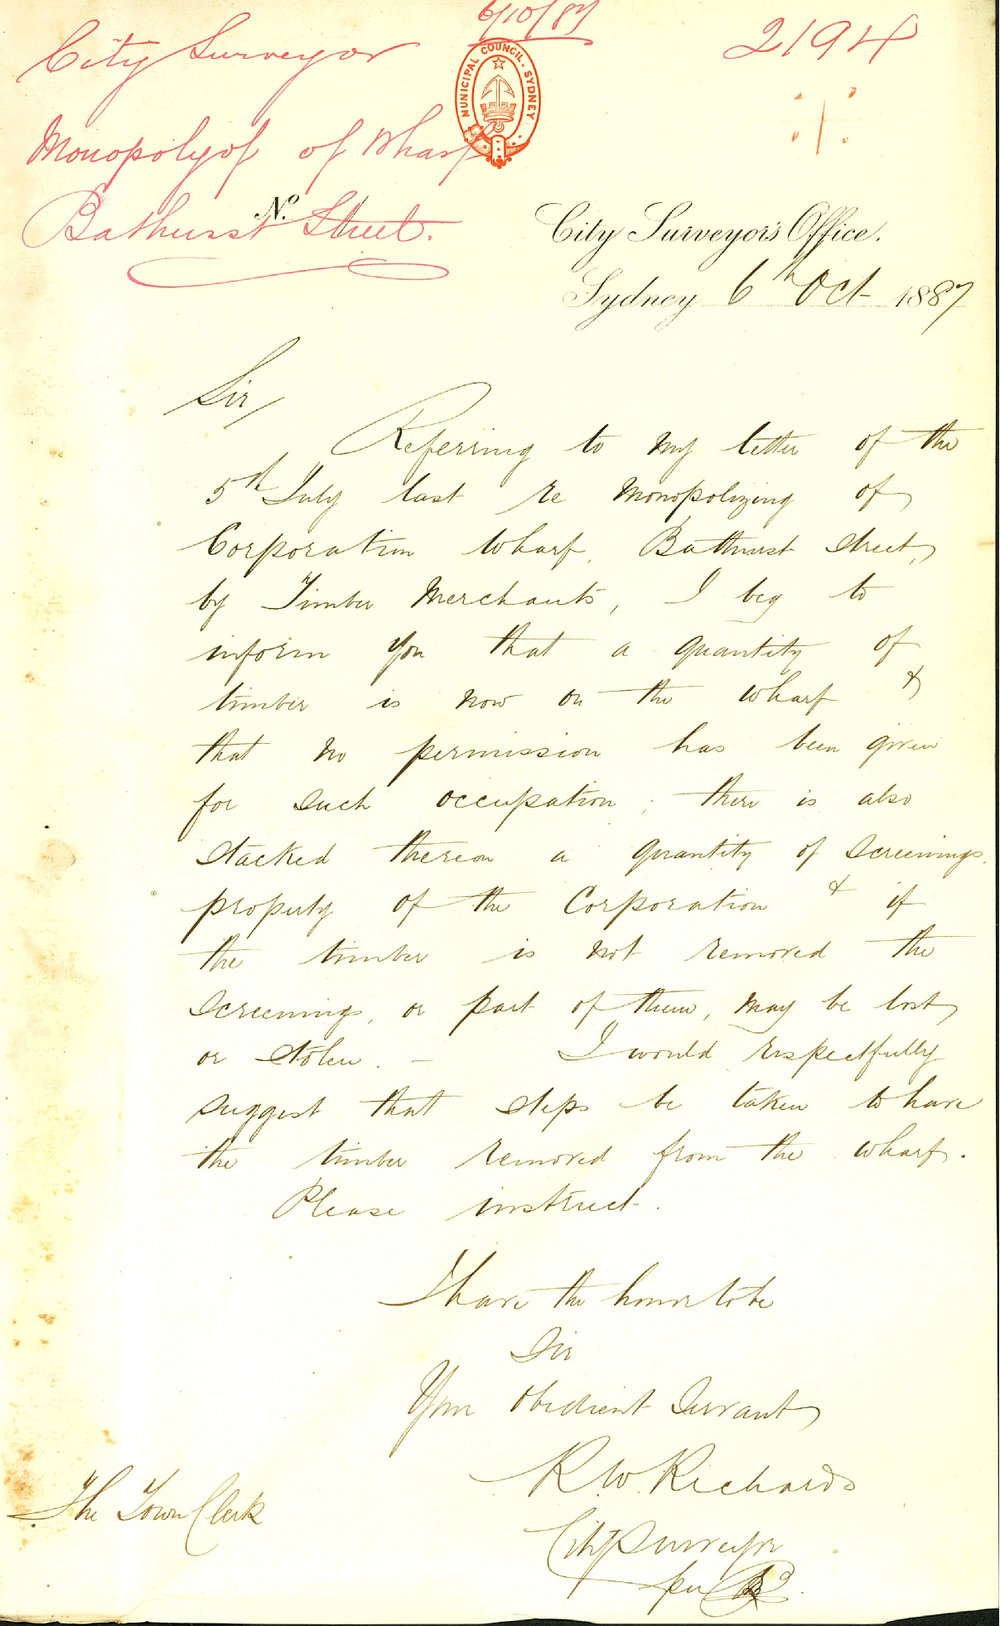 6/10/87
City Surveyor
2194
MUNICIPAL COUNCIL. SYDNEY.
Monopolyof of Wharf
Bathurst Street.
No.
City Surveyor's Office.
Sydney 6th Oct 1887
Sir,
Referring to my letter of the
5th July last re Monopolizing of
Corporation Wharf, Bathurst Street,
by Timber Merchants, I beg to
inform you that a quantity of
timber is now on the wharf &
that no permission has been given
for such occupation; there is also
stacked thereon a quantity of screenings,
property of the Corporation & if
the timber is not removed the
screenings, or part of them, may be lost
or stolen. — I would respectfully
suggest that steps be taken to have
the timber removed from the wharf.
Please instruct.
I have the honor to be
Sir
Your Obedient Servant
R.W. Richards
City Surveyor
per
The Town Clerk